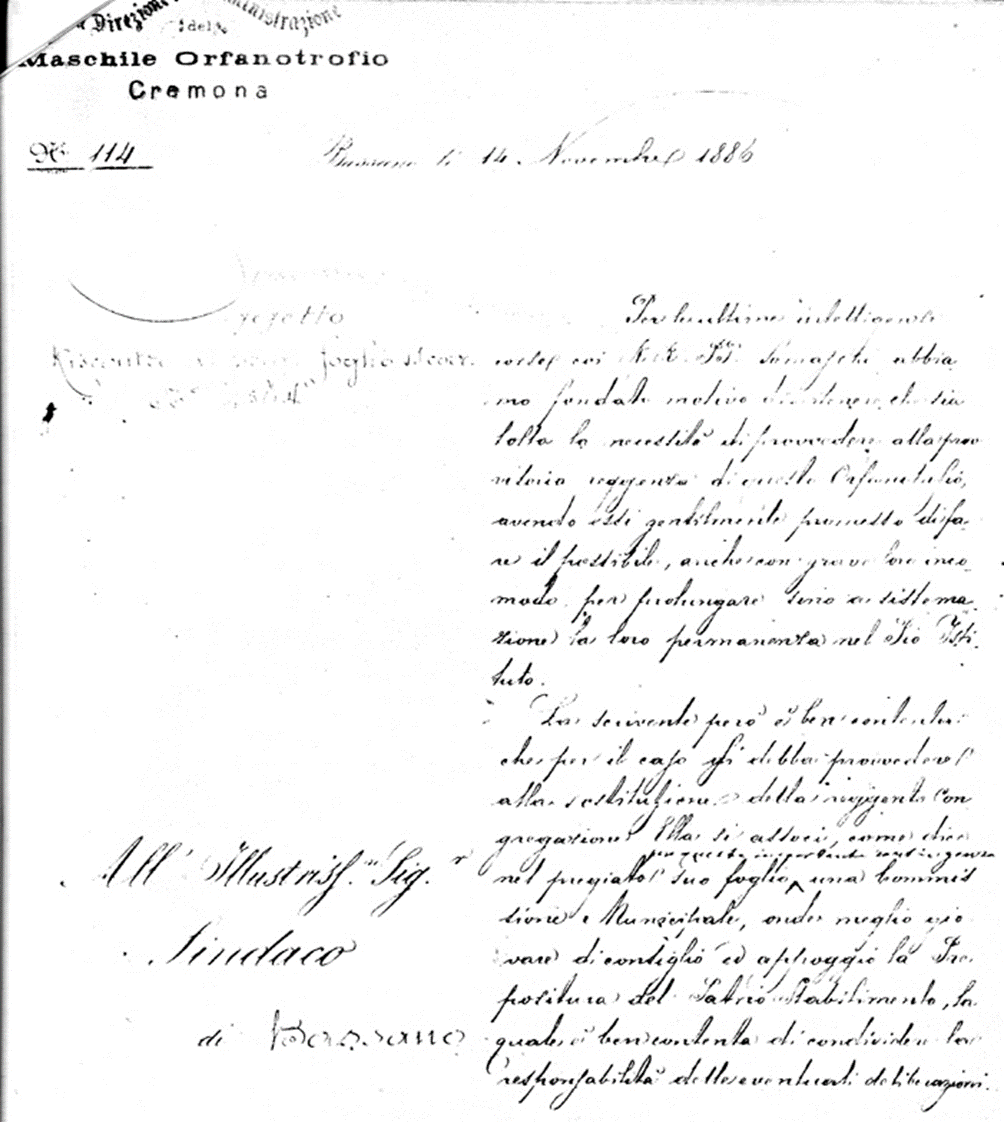 Direzione
del
Maschile Orfanotrofio
Cremona
N.º 114
Bassano li 14 Novembre 1886
Oggetto
Riscontro foglio
Per le ultime intelligenze
corse coi R. R. P.P. Somaschi abbia
mo fondato motivo di ritenere che sia
tolta la necessità di provvedere alla prov
vitoria reggenza di questo Orfanotrofio,
avendo essi gentilmente promesso di fa-
re il possibile, anche con grave loro inco
modo per prolungare sino a sistema
zione la loro permanenza nel Pio Isti
tuto.
La scrivente però è ben contenta
che per il caso si debba provvedere
alla sostituzione della reggente Con
gregazione Ella si associ, come dice
per questa importante
nel pregiato suo foglio una Commis
sione Municipale, onde meglio gio
vare di consiglio ed appoggio la Pre
positura del Patrio Stabilimento, la
quale è ben contenta di condividere la
responsabilità delle eventuali deliberazioni.
All' Illustriss.mo Sig.r
Sindaco
di Bassano